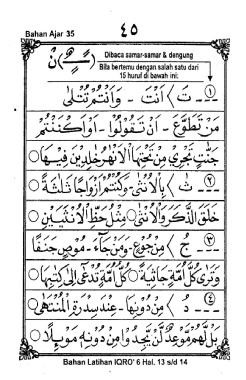 Bahan Ajar 35
٤٥
نْ (ـًـٍـٌ)
Dibaca samar-samar & dengung
Bila bertemu dengan salah satu dari
15 huruf di bawah ini:
١ --- تَ > اَنْتَ - وَاَنْتُمْ تَتْلٰى
مَنْ تَطَوَّعَ - اَنْ تَقُوْلُوْا - اَوْ اِنْ كُنْتُمْ
جَنّٰتٍ تَجْرِيْ مِنْ تَحْتِهَا الْاَنْهٰرُ خٰلِدِيْنَ فِيْهَا
٢ --- ثَ > بِالْاُنْثٰى - وَكُنْتُمْ اَزْوَاجًا ثَلٰثَةً
خَلَقَ الذَّكَرَ وَالْاُنْثٰى مِثْلُ حَظِّ الْاُنْثَيَيْنِ
٣ --- جُ > مِنْ جُوْعٍ - وَمَنْ جَآءَ - مُوْصٍ جَنَفًا
وَتَرٰى كُلَّ اُمَّةٍ جَاثِيَةً كُلُّ اُمَّةٍ تُدْعٰى اِلٰى كِتٰبِهَا
٤ --- دُ > مِنْ دُوْنِهَا - عِنْدَ سِدْرَةِ الْمُنْتَهٰى
بَلْ لَّهُمْ مَّوْعِدٌ لَّنْ يَّجِدُوْا مِنْ دُوْنِهٖ مَوْئِلًا
Bahan Latihan IQRO' 6 Hal. 13 s/d 14